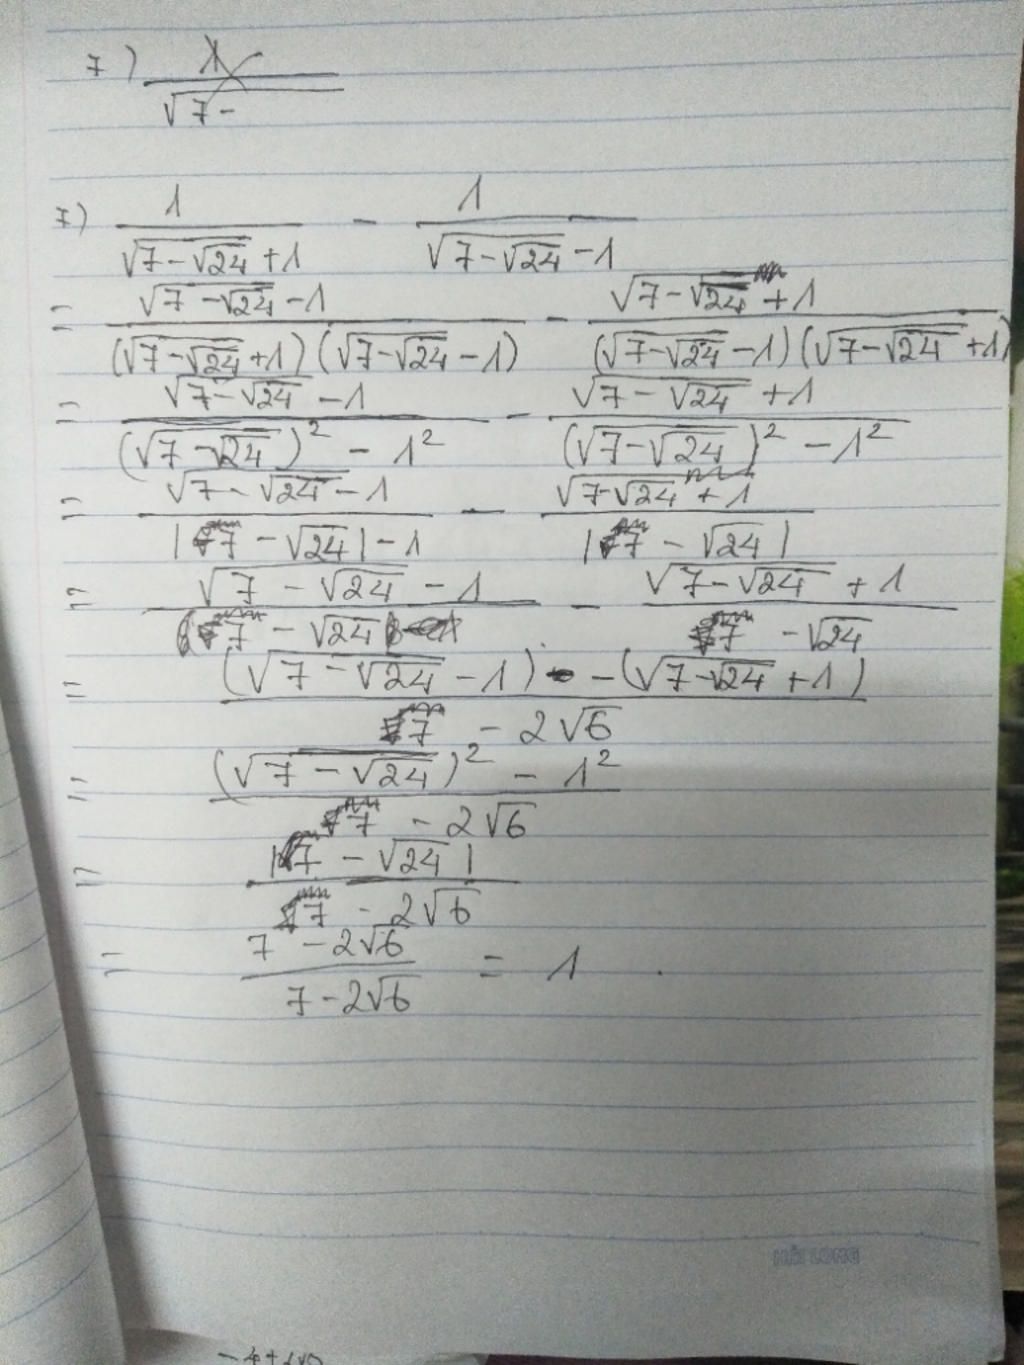 7) 1 / √7 -
7) 1 / (√(7-√24) + 1) - 1 / (√(7-√24) - 1)
= (√(7-√24) - 1) / ((√(7-√24) + 1)(√(7-√24) - 1)) - (√(7-√24) + 1) / ((√(7-√24) - 1)(√(7-√24) + 1))
= (√(7-√24) - 1) / ((√(7-√24))² - 1²) - (√(7-√24) + 1) / ((√(7-√24))² - 1²)
= (√(7-√24) - 1) / (|7 - √24| - 1) - (√(7-√24) + 1) / |7 - √24|
= (√(7-√24) - 1) / (7 - √24) - (√(7-√24) + 1) / (7 - √24)
= ((√(7-√24) - 1) - (√(7-√24) + 1)) / (7 - 2√6)
= ((√(7-√24))² - 1²) / (7 - 2√6)
= |7 - √24| / (7 - 2√6)
= (7 - 2√6) / (7 - 2√6) = 1